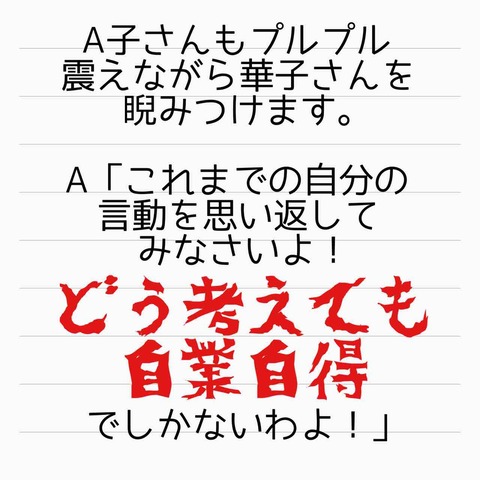 A子さんもプルプル
震えながら華子さんを
睨みつけます。
A「これまでの自分の
言動を思い返して
みなさいよ！
どう考えても
自業自得
でしかないわよ！」